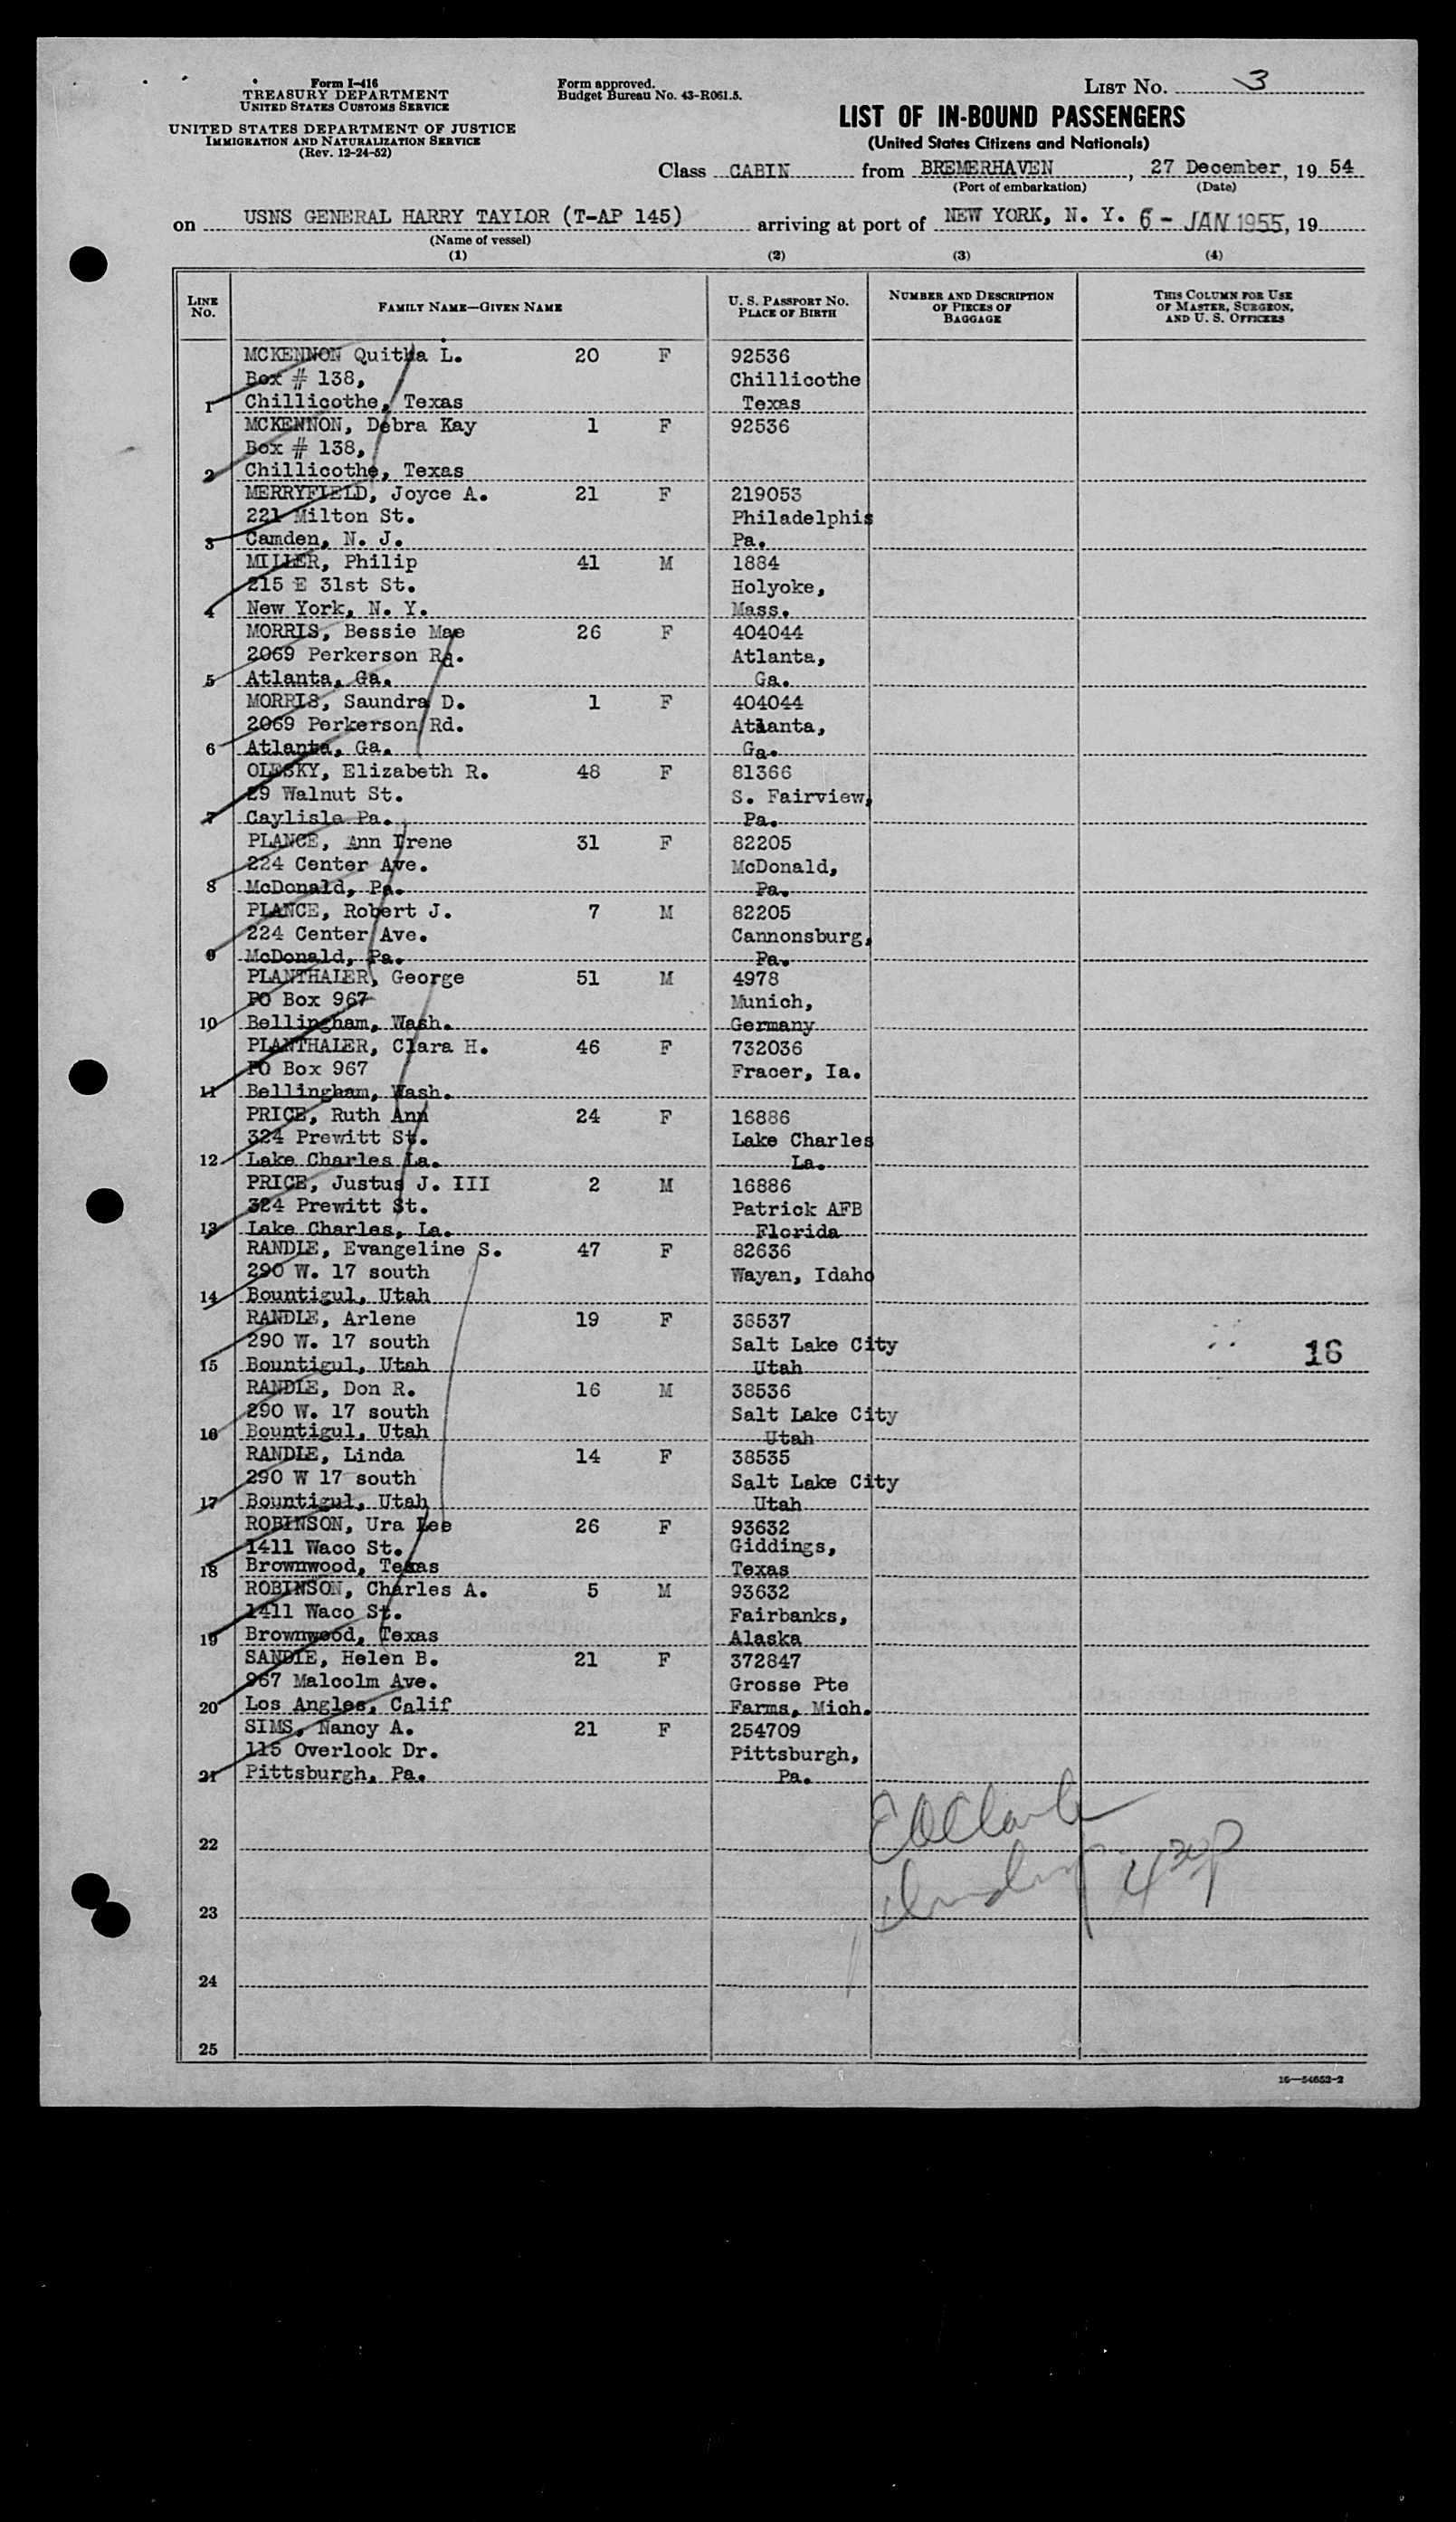 Form I-416
TREASURY DEPARTMENT
UNITED STATES CUSTOMS SERVICE
UNITED STATES DEPARTMENT OF JUSTICE
IMMIGRATION AND NATURALIZATION SERVICE
(Rev. 12-24-52)
Form approved.
Budget Bureau No. 43-R061.5.
LIST No. 3
LIST OF IN-BOUND PASSENGERS
(United States Citizens and Nationals)
Class CABIN from BREMERHAVEN, 27 December, 19 54
(Port of embarkation) (Date)
on USNS GENERAL HARRY TAYLOR (T-AP 145) arriving at port of NEW YORK, N. Y. 6 - JAN 1955, 19
(Name of vessel)
(1) (2) (3) (4)
LINE No. FAMILY NAME—GIVEN NAME U. S. PASSPORT No. PLACE OF BIRTH NUMBER AND DESCRIPTION OF PIECES OF BAGGAGE THIS COLUMN FOR USE OF MASTER, SURGEON, AND U. S. OFFICERS
MCKENNON Quitha L. 20 F 92536
Box # 138, Chillicothe
1 Chillicothe, Texas Texas
MCKENNON, Debra Kay 1 F 92536
Box # 138,
2 Chillicothe, Texas
MERRYFIELD, Joyce A. 21 F 219053
221 Milton St. Philadelphis
3 Camden, N. J. Pa.
MILLER, Philip 41 M 1884
215 E 31st St. Holyoke,
4 New York, N. Y. Mass.
MORRIS, Bessie Mae 26 F 404044
2069 Perkerson Rd. Atlanta,
5 Atlanta, Ga. Ga.
MORRIS, Saundra D. 1 F 404044
2069 Perkerson Rd. Atlanta,
6 Atlanta, Ga. Ga.
OLESKY, Elizabeth R. 48 F 81366
29 Walnut St. S. Fairview,
7 Caylisle Pa. Pa.
PLANCE, Ann Irene 31 F 82205
224 Center Ave. McDonald,
8 McDonald, Pa. Pa.
PLANCE, Robert J. 7 M 82205
224 Center Ave. Cannonsburg,
9 McDonald, Pa. Pa.
PLANTHALER, George 51 M 4978
PO Box 967 Munich,
10 Bellingham, Wash. Germany
PLANTHALER, Clara H. 46 F 732036
PO Box 967 Fracer, Ia.
11 Bellingham, Wash.
PRICE, Ruth Ann 24 F 16886
324 Prewitt St. Lake Charles
12 Lake Charles La. La.
PRICE, Justus J. III 2 M 16886
324 Prewitt St. Patrick AFB
13 Lake Charles, La. Florida
RANDLE, Evangeline S. 47 F 82636
290 W. 17 south Wayan, Idaho
14 Bountigul, Utah
RANDLE, Arlene 19 F 38537
290 W. 17 south Salt Lake City
15 Bountigul, Utah Utah 16
RANDLE, Don R. 16 M 38536
290 W. 17 south Salt Lake City
16 Bountigul, Utah Utah
RANDLE, Linda 14 F 38535
290 W 17 south Salt Lake City
17 Bountigul, Utah Utah
ROBINSON, Ura Lee 26 F 93632
1411 Waco St. Giddings,
18 Brownwood, Texas Texas
ROBINSON, Charles A. 5 M 93632
1411 Waco St. Fairbanks,
19 Brownwood, Texas Alaska
SANDIE, Helen B. 21 F 372847
967 Malcolm Ave. Grosse Pte
20 Los Angles, Calif Farms, Mich.
SIMS, Nancy A. 21 F 254709
115 Overlook Dr. Pittsburgh,
21 Pittsburgh, Pa. Pa.
22
23
24
25
16—54652-2